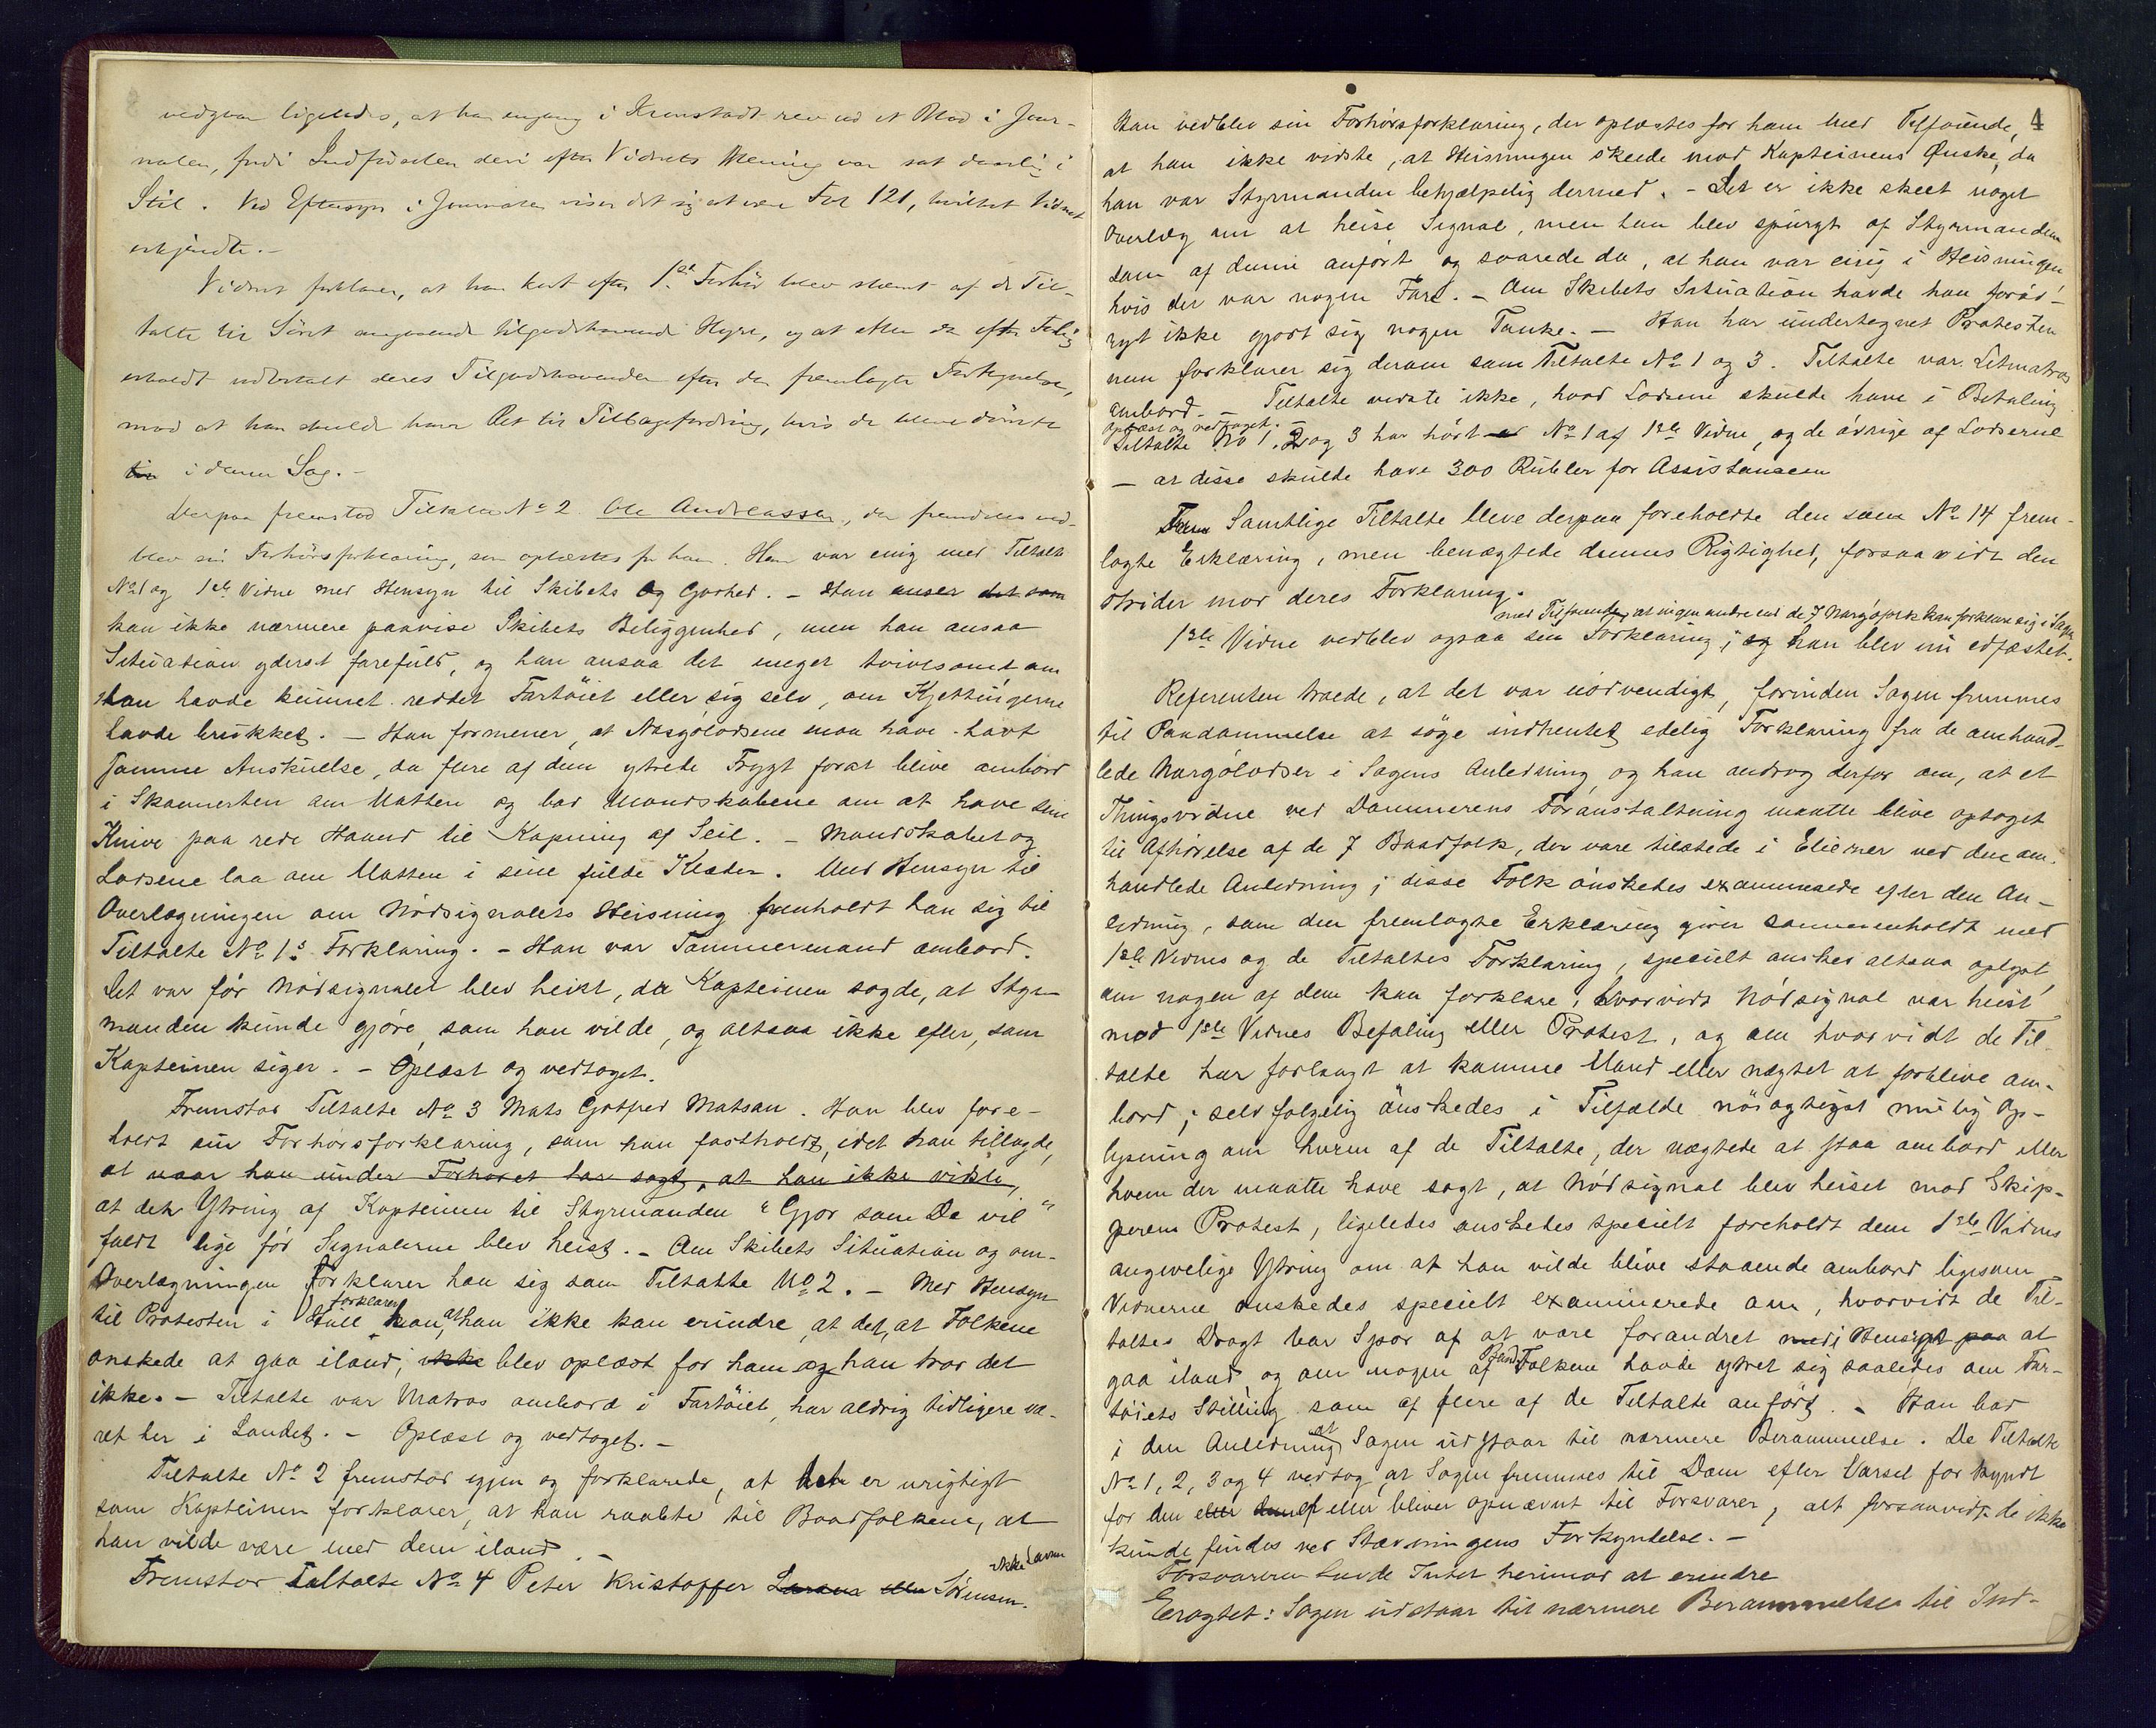 vedgaar ligeledes, at han engang i Kronstadt rev ud et Blad i Jour-
nalen, fordi Indførselen deri efter Vidnets Mening var sat daarlig i
Stil. Ved Eftersyn i Journalen viser det sig at være Fol 121, hvilket Vidnet
erkjendte.-
Vidnet forklarer, at han kort efter 1ste Forhør blev stevnt af de Til-
talte til Søret angaaende tilgodehavende Hyre, og at efter de efter Forlig
erholdt udbetalt deres Tilgodehavender efter den fremlagte Fortegnelse,
mod at han skulde have Ret til Tilbagefordring, hvis de bleve dömte
i denne Sag.-
Derpaa fremstod Tiltalte No 2 Ole Andreassen, der fremdeles ved-
blev sin Forhørsforklaring, som oplæstes for ham. Han var enig med Tiltalte
No 1 og 1ste Vidne med Hensyn til Skibets Og Godhed. - Han anser det som
kan ikke nærmere paavise Skibets Beliggenhed, men han ansaa
Situation yderst farefuld, og han ansaa det meget tvivlsomt, om
man havde kunnet reddet Fartöiet eller sig selv, om Kjettingerne
havde brukket. - Han formener, at Nargölodsene maa have havt
samme Anskuelse, da flere af dem ytrede Frygt forat blive ombord
i Skonnerten om Natten og bad Mandskabene om at have sine
Knive paa rede Haand til Kapning af Seil. - Mandskabet og
Lodsene laa om Natten i sine fulde Klæder. Med Hensyn til
Overlægningen om Nödsignalets Heisning henholdt han sig til
Tiltalte No 1s Forklaring. - Han var Tømmermand ombord.
Det var för Nödsignalet blev heist, da Kapteinen sagde, at Styr-
manden kunde gjöre, som han vilde, og altsaa ikke efter, som
Kapteinen siger. - Oplæst og vedtaget.
Fremstod Tiltalte No 3 Mats Gotfred Matsan. Han blev fore-
holdt sin Forhørsforklaring, som han fastholdt, idet han tillagde,
at naar han under Forhøret har sagt, at han ikke vidste,
at den Ytring af Kapteinen til Styrmanden "Gjør som De vil"
faldt lige för Signalerne blev heist. - Om Skibets Situation og om-
Overlægningen forklarer han sig som Tiltalte No 2. - Med Hensyn
til Protesten i Hull forklarer han, at han ikke kan erindre, at det, at Folkene
ønskede at gaa iland, ikke blev oplæst for ham og han tror det
ikke. - Tiltalte var Matros ombord i Fartöiet, har aldrig tidligere væ-
ret her i Landet. - Oplæst og vedtaget. -
Tiltalte No 2 fremstod igjen og forklarede, at det er urigtigt
som Kapteinen forklarer, at han raabte til Baadfolkene, at
han vilde være med dem iland.
Fremstod Taltalte No 4 Peter Kristoffer Larsen eller Sörensen. ikke Larsen
4
Han vedblev sin Forhørsforklaring, der oplæstes for ham med Tilföiende,
at han ikke vidste, at Heisningen skeede mod Kapteinens Ønske, da
han var Styrmanden behjælpelig dermed. - Det er ikke skeet noget
Overlæg om at heise Signal, men han blev spurgt af Styrmanden
som af denne anført og svarede da, at han var enig i Heisningen
hvis der var nogen Fare. - Om Skibets Situation havde han forøv-
rigt ikke gjort sig nogen Tanke. - Han har undertegnet Protesten
men forklarer sig derom som Tiltalte No 1 og 3. Tiltalte var Letmatros
ombord. - Tiltalte vidste ikke, hvad Lodsene skulde have i Betaling
oplæst og vedtaget. -
Tiltalte No 1, 2 og 3 har hört No 1 af 1ste Vidne, og de övrige af Lodserne
- at disse skulde have 300 Rubler for Assistansen
Frem Samtlige Tiltalte bleve derpaa foreholdte den som No 14 frem-
lagte Erklæring, men benægtede dennes Rigtighed, forsaavidt den
strider mod deres Forklaring.
med Tilföiende, at ingen andre end de 7 Nargöfolk kan forklare sig i Sagen
1ste Vidne vedblev ogsaa sin Forklaring; og han blev nu edfæstet.
Referenten troede, at det var nödvendigt, forinden Sagen fremmes
til Paadømmelse at søge indhentet edelig Forklaring fra de omhand-
lede Nargölodser i Sagens Anledning, og han androg derfor om, at et
Thingsvidne ved Dommerens Foranstaltning maatte blive optaget
til Afhörelse af de 7 Baadfolk, der vare tilstede i Eliesner ved den om-
handlede Anledning; disse Folk önskedes examinerede efter den An-
ledning, som den fremlagte Erklæring giver sammenholdt med
1ste Vidnes og de Tiltaltes Forklaring, specielt ønskes altsaa oplyst,
om nogen af dem kan forklare, hvorvidt Nödsignal var heist
mod 1ste Vidnes Befaling eller Protest, og om hvorvidt de Til-
talte har forlangt at komme iland eller nægtet at forblive om-
bord; selvfølgelig önskedes i Tilfælde nöiagtigst mulig Op-
lysning om hvem af de Tiltalte, der nægtede at staa ombord eller
hvem der maatte have sagt, at Nödsignal blev heiset mod Skip-
perens Protest, ligeledes ønskedes specielt foreholdt dem 1ste Vidnes
angivelige Ytring om at han vilde blive staaende ombord ligesom
Vidnerne ønskedes specielt examinerede om, hvorvidt de Til-
taltes Dragt bar Spor af at være forandret med i Hensigt paa at
gaa iland, og om nogen af Baad Folkene havde ytret sig saaledes om Far-
töiets Stilling som af flere af de Tiltalte anført. - Han bad
i den Anledning at Sagen udstaar til nærmere Berammelse. De Tiltalte
No 1, 2, 3 og 4 vedtog, at Sagen fremmes til Dom efter Varsel forkyndt
for den eller bliver opnævnt til Forsvarer, alt forsaavidt de ikke
kunde findes ved Stævningens Forkyndelse. -
Forsvareren havde Intet herimod at erindre
Eragtet: Sagen udstaar til nærmere Berammelse til Ind-